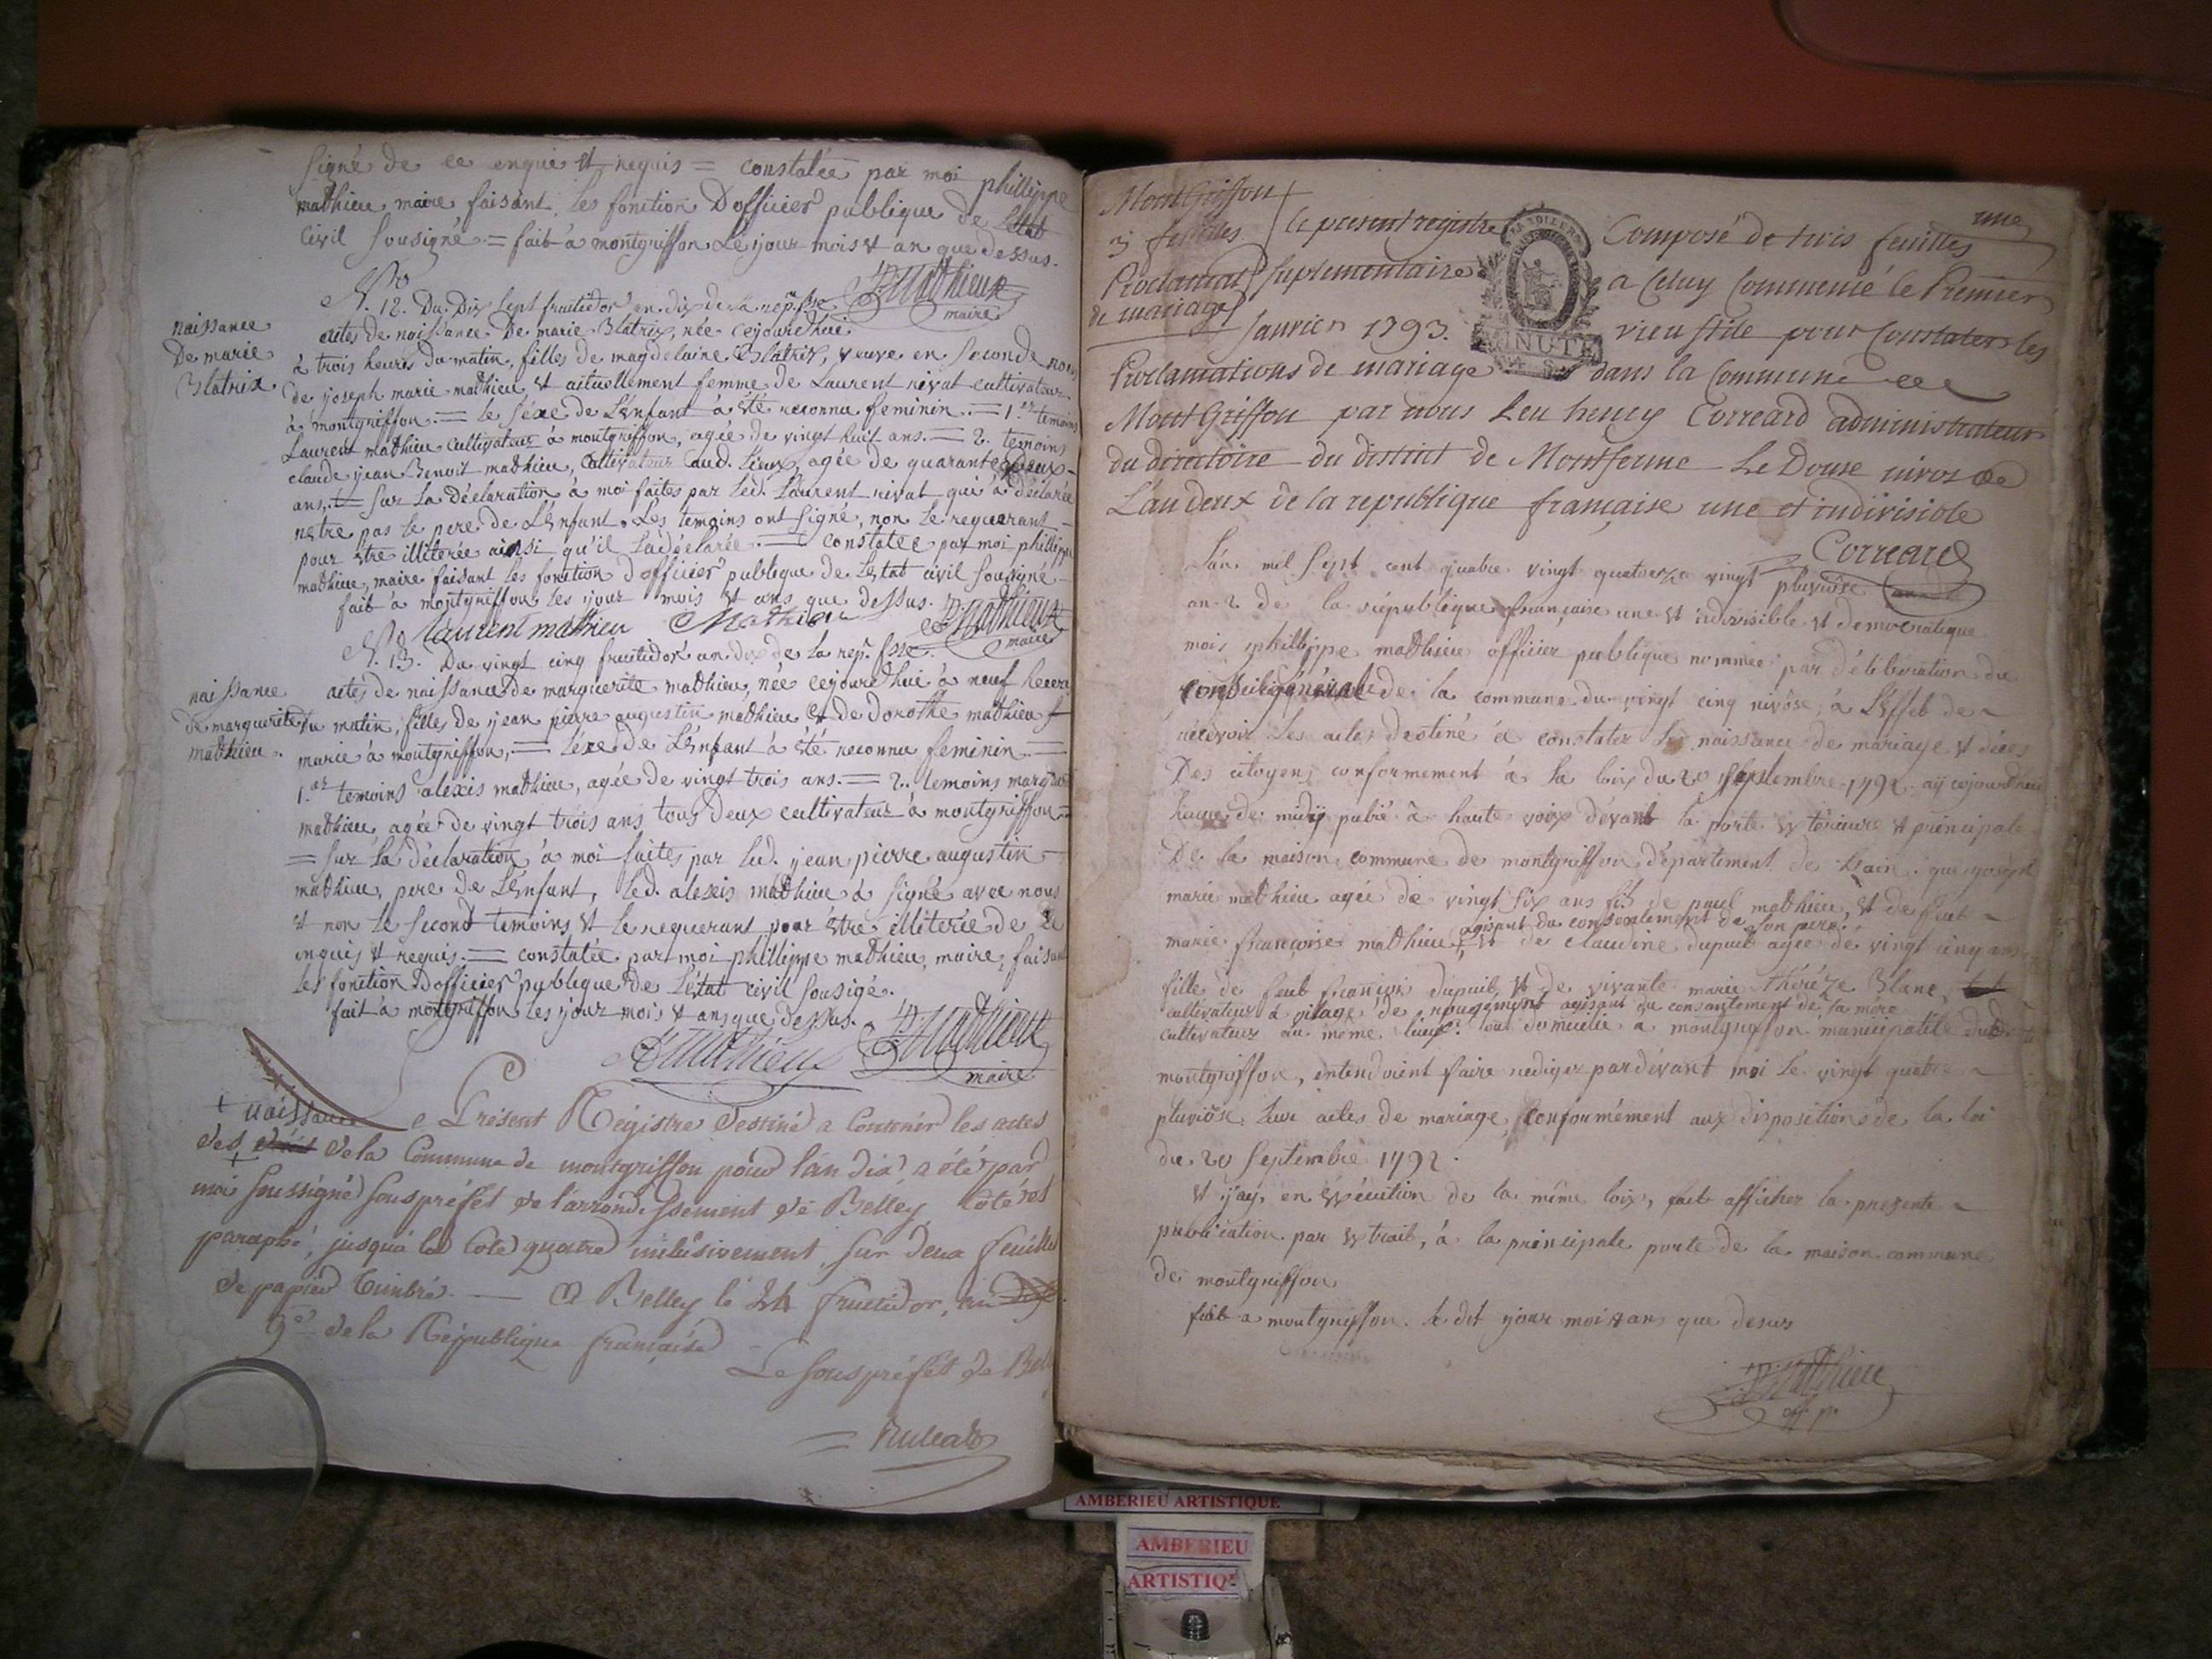 signé de ce enquis et requis = constatée par moi phillippe
mathieu maire faisant les fonction Dofficier publique de Létat
civil sousigné = fait à montgriffon Le jour mois et an que dessus.
P. Mathieux
maire
N.ro 12. Du Dix Sept fructidor an dix de la rep. fse
naissance
De marie
Blatrix.
actes de naissance De marie Blatrix, née cejourdhui
à trois heures du matin, filles de magdelaine Blatrix, veuve en seconde noces
de joseph marie mathieu et actuellement femme de Laurent rivat cultivateur
à montgriffon. = le séxe de L'Enfant à été reconnu feminin. = 1.er temoins
Laurent mathieu cultivateur à montgriffon, agée de vingt huit ans. = 2. temoins
claude jean Benoit mathieu, cultivateur aud. Lieux, agée de quarante deux
ans. = sur La Déclaration à moi faites par led. Laurent rivat qui à déclarée
nêtre pas le pere de L'Enfant. Les temoins ont signé, non le requerant
pour être illiterée ainsi qu'il La déclarée. = constatée par moi phillippe
mathieu, maire faisant les fonction dofficier publique de Lestat civil sousigné
fait à montgriffon les jour mois et ans que dessus.
laurent mathieu Mathieu P. mathieux
maire
N.o 13. Du vingt cinq fructidor an dix de la rep. fsse
naissance
de marguerite
mathieu.
actes de naissance de marguerite mathieu, née cejourdhui à neuf heures
du matin, filles de jean pierre augustin mathieu et de Dorothé mathieu
marié à montgriffon, = séxe de L'Enfant à été reconnu feminin =
1.er temoins alexis mathieu, agée de vingt trois ans. = 2. temoins
mathieu agée de vingt trois ans tous deux cultivateur à montgriffon
= sur la déclaration à moi faites par led. jean pierre augustin
mathieu, pere de L'Enfant, led. alexis mathieu à signé avec nous
et non le second temoins et le requerant pour être illiterée de ce
enquis et requis. = constatée par moi phillippe mathieu, maire, faisant
les fonction Dofficier publique de L'état civil sousigé.
fait à montgriffon les jour mois et ans que dessus.
A Mathieu P. Mathieux
maire
Le Présent Régistre destiné a contenir les actes
+ naissance
des de la Commune de montgriffon pour l'an dix, a été par
moi soussigné souspréfet de l'arrondissement de Belley, coté et
paraphé, jusqu'à la cote quatre inclusivement, sur deux feuilles
de papier timbré. — A Belley le 24 fructidor, an
9.e de la République française
Le souspréfet de Bell
Rulcat
une
MontGriffon
3 feuilles
Proclamat
de mariages
le present registre Composé de trois feuilles
suplementaire a Celuy Commencé le Premier
Janvier 1793. vieu stile pour Constater les
MINUTE
Proclamations de mariage dans la Commune de
MontGriffon par nous Leu henry Correard administrateur
du directoire du district de Montferme Le Douse nivos de
L'an deux de la republique française une et indivisible
Correard
L'an mil sept cent quatre vingt quatorze vingt pluviôse
an 2 de la république française une et indivisible et démocratique
mois phillippe mathieu officier publique nommée par délibération du
conseil général de la commune du vingt cinq nivôse, à L'Effet de
récevoir Les actes destiné à constater les naissance de mariage et décès
Des citoyens conformement à la loix du 20 septembre 1792. aÿ cejourdhui
heure de midy publié à haute voix dévant la porte extérieure et principale
De la maison commune de montgriffon département de Lain. que joseph
marie mathieu agée de vingt six ans fils de paul mathieu, et de feut
agisant du consentement de son pere.
marie françoise mathieu, et de claudine dupuit agée de vingt cinq ans
fille de feut françois dupuit, et de vivante marie théréze Blanc,
cultivateur à vilage de nougément agisant du consentement de sa mére
cultivateur au même lieux. domicilié a montgriffon municipalité dud.
montgriffon, entendoient faire rediger pardévant moi Le vingt quatre
pluviôse leur actes de mariage, conformément aux dispositions de la loi
du 20 septembre 1792.
et j'ay, en exécution de la même loix, fait afficher la presente
publication par extrait, à la principale porte de la maison commune
de montgriffon
fait a montgriffon. le dit jour mois et an que desus
P. Mathieu
off. p.
AMBERIEU ARTISTIQUE
AMBERIEU
ARTISTIQ